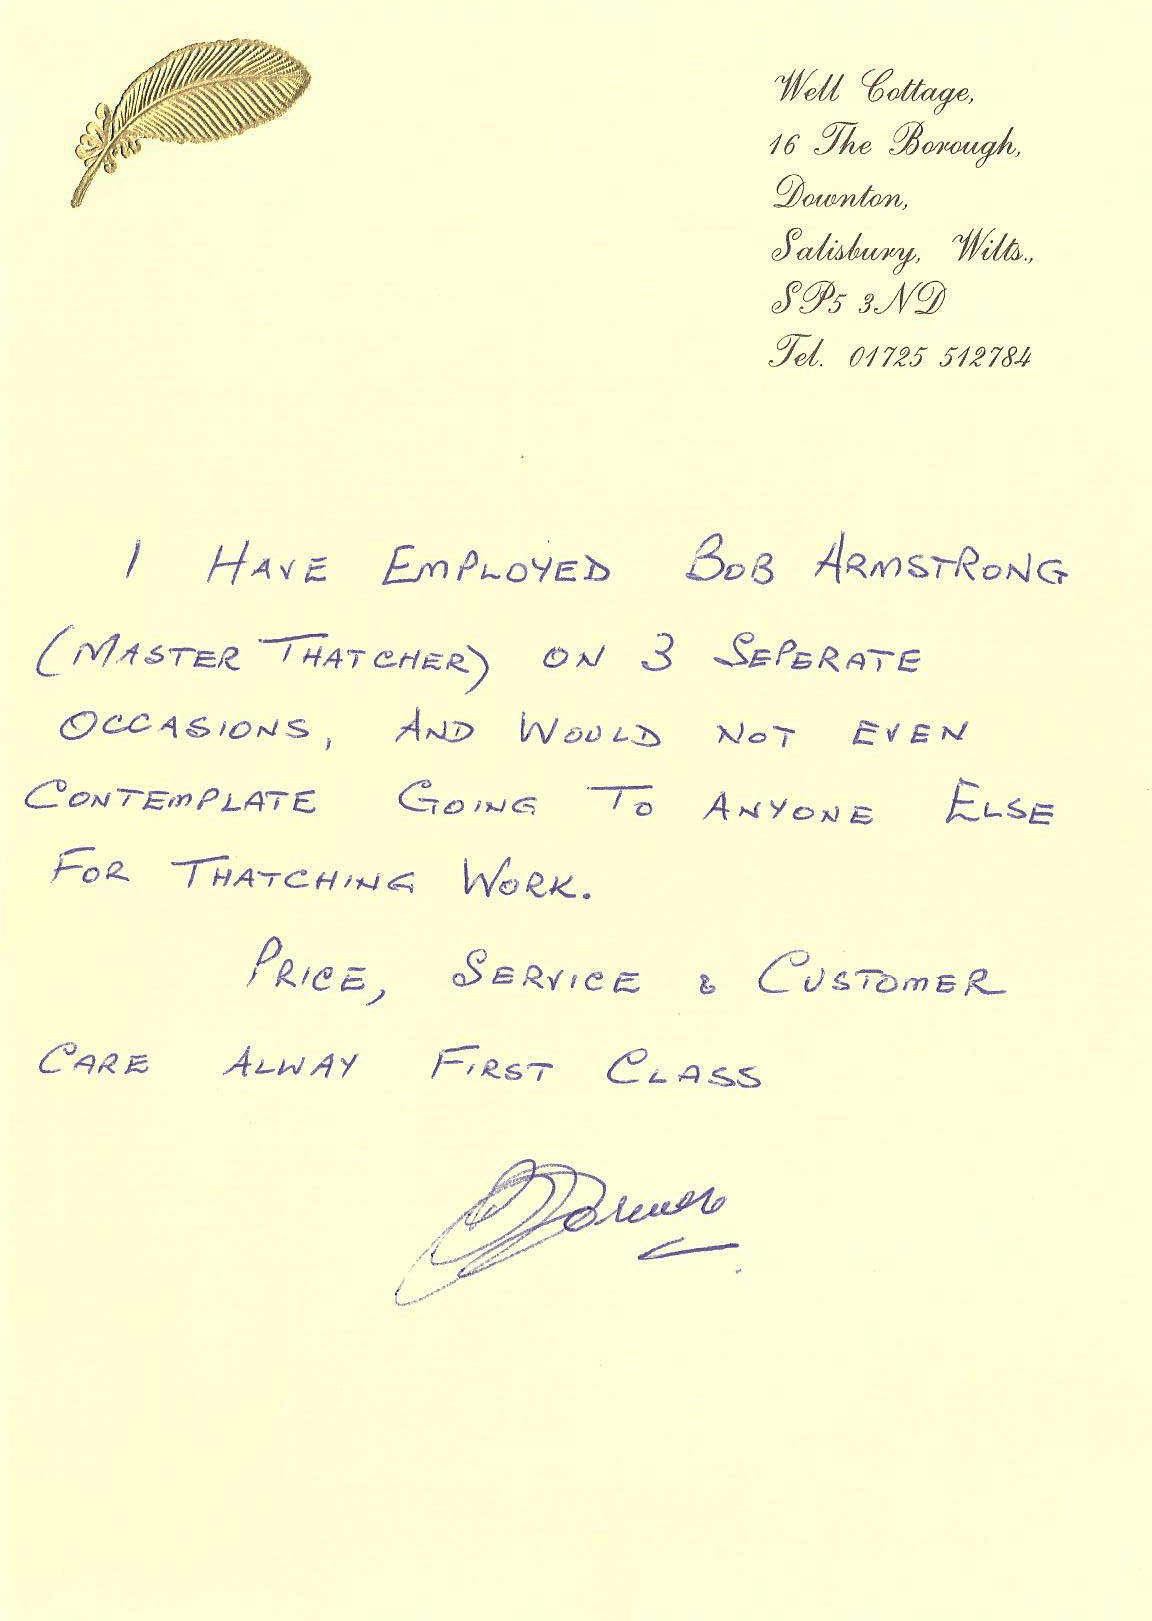 Well Cottage,
16 The Borough,
Downton,
Salisbury, Wilts.,
SP5 3ND
Tel. 01725 512784
I HAVE EMPLOYED BOB ARMSTRONG
(MASTER THATCHER) ON 3 SEPERATE
OCCASIONS, AND WOULD NOT EVEN
CONTEMPLATE GOING TO ANYONE ELSE
FOR THATCHING WORK.
PRICE, SERVICE & CUSTOMER
CARE ALWAY FIRST CLASS